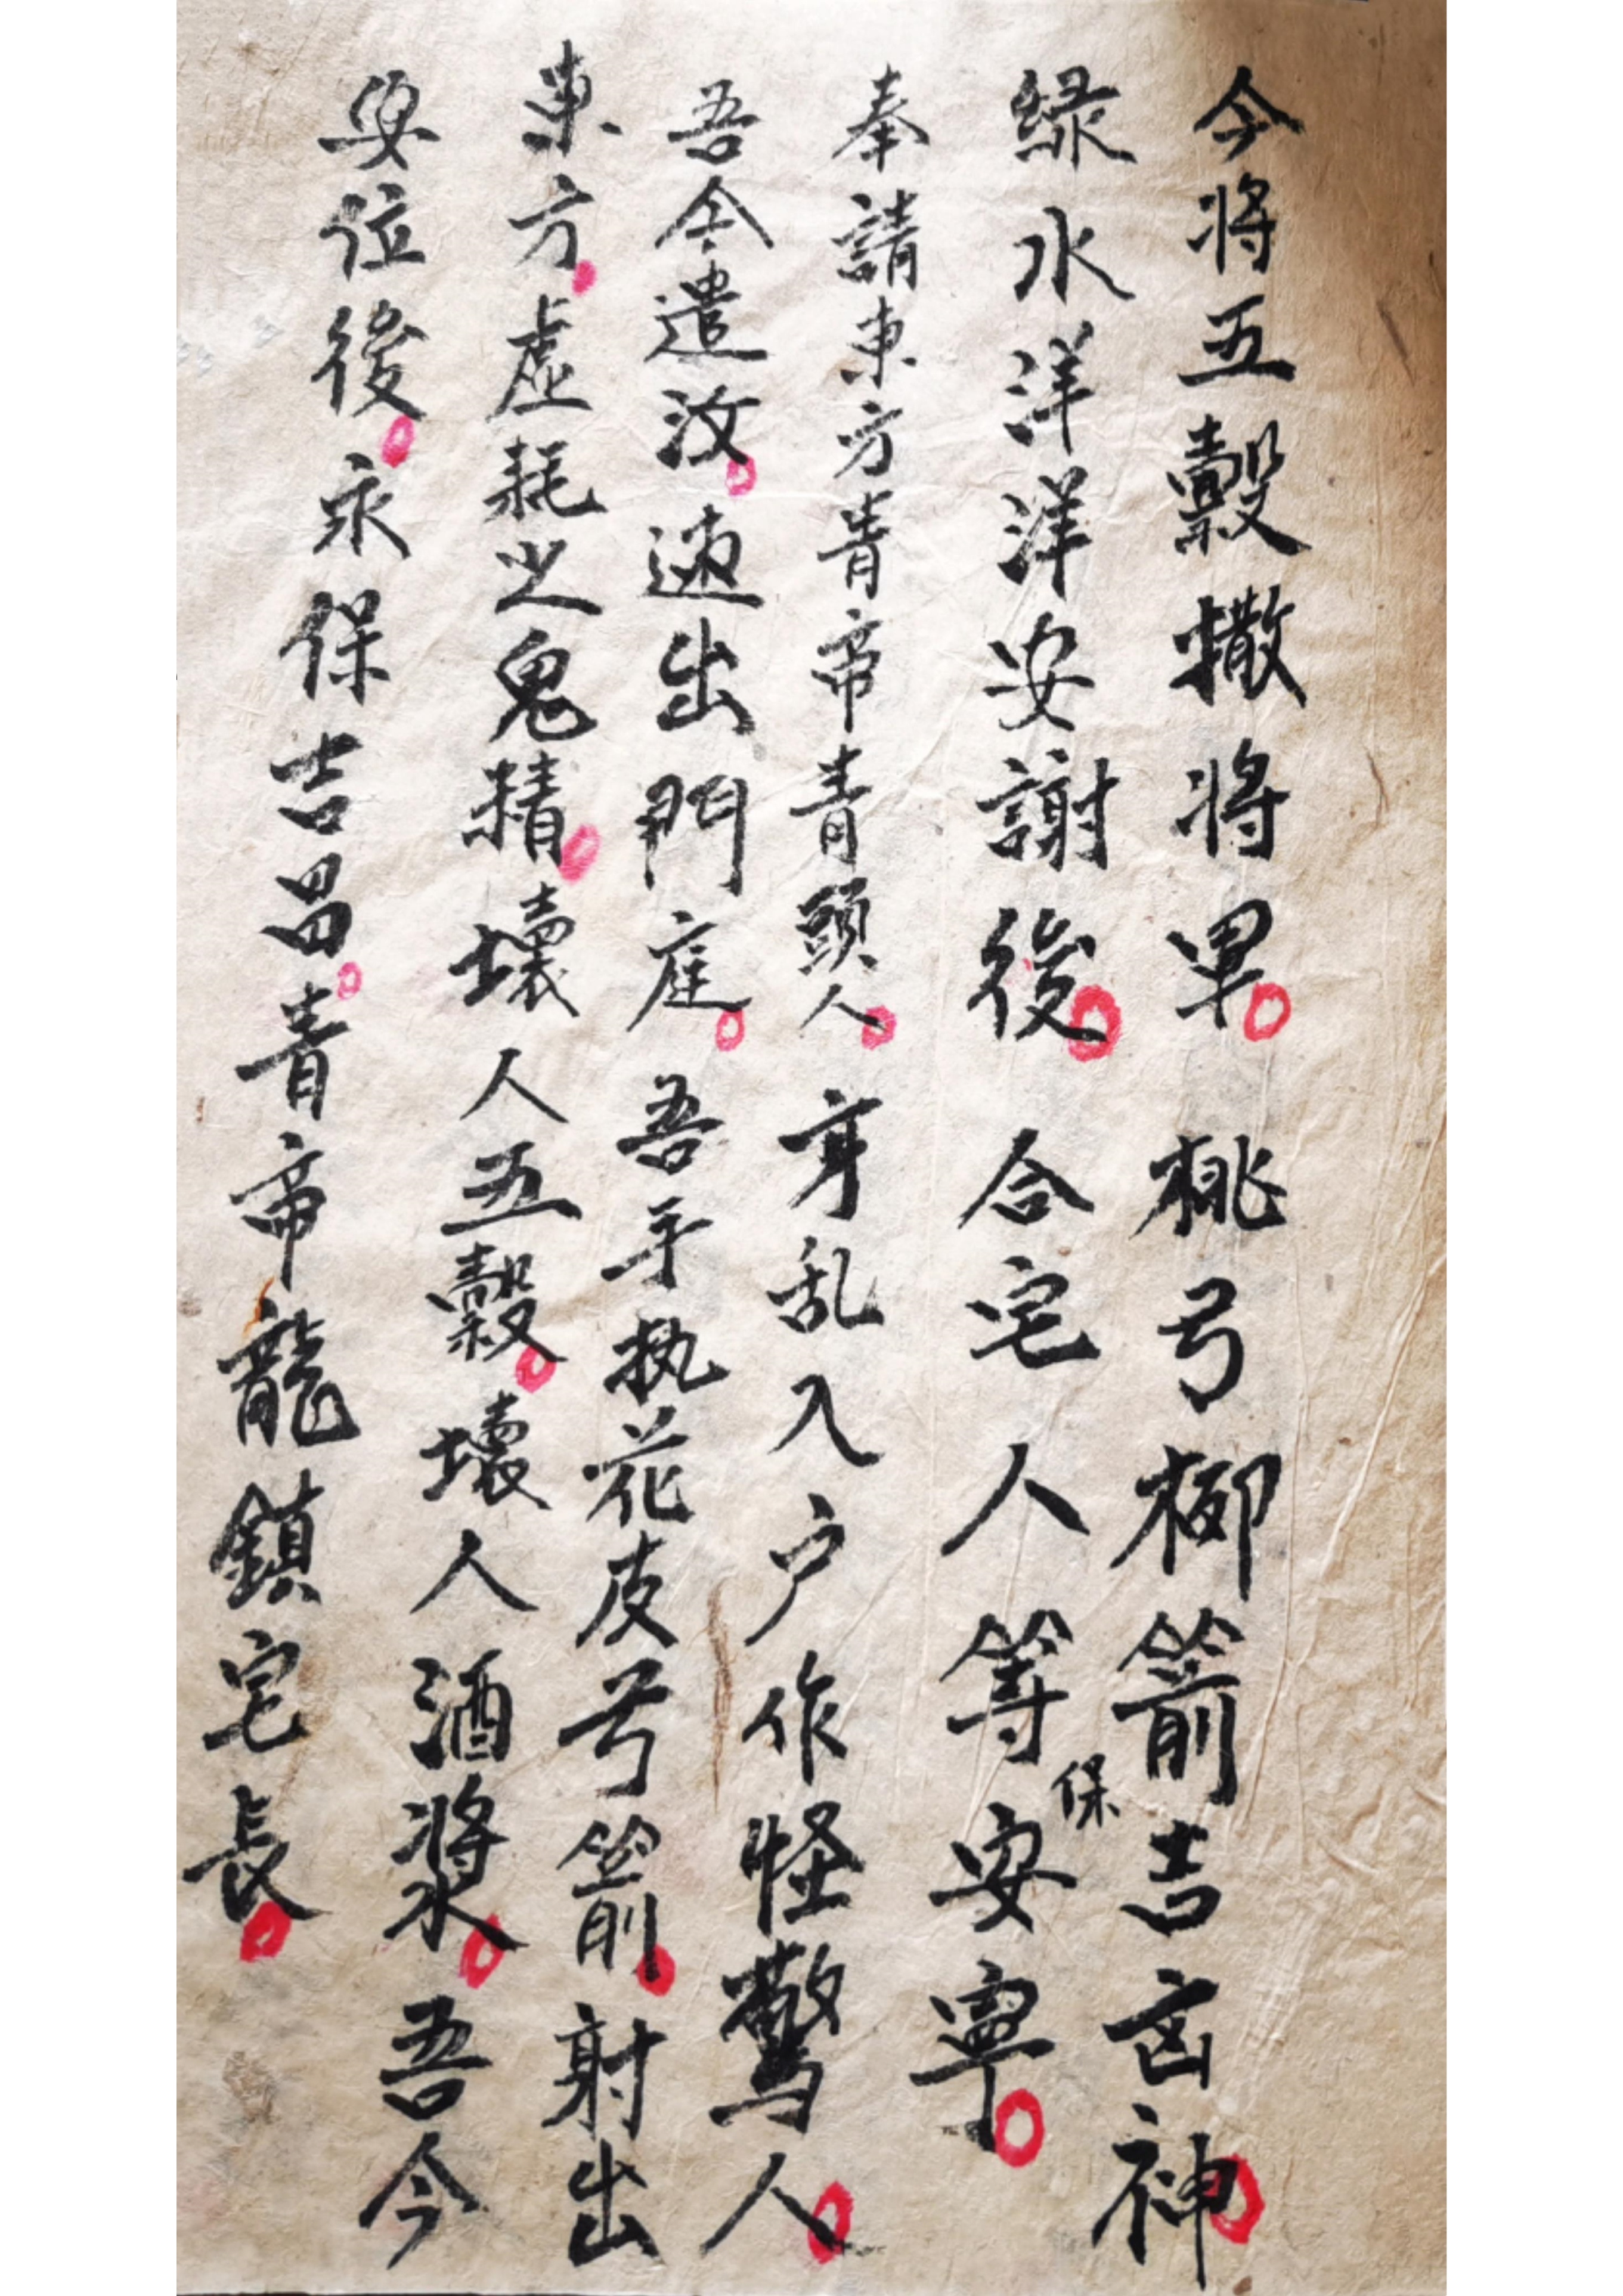 今将五穀撒将畢。桃弓柳箭吉凶神。
绿水洋洋安謝後。合宅人等保安寧。
奉請東方青帝青頭人。穿乱入户作怪驚人。
吾今遣汝。速出門庭。吾手执花皮弓箭。射出
東方。虚耗之鬼精。壞人五穀。壞人酒漿。吾今
安位後。永保吉昌。青帝龍鎮宅長。